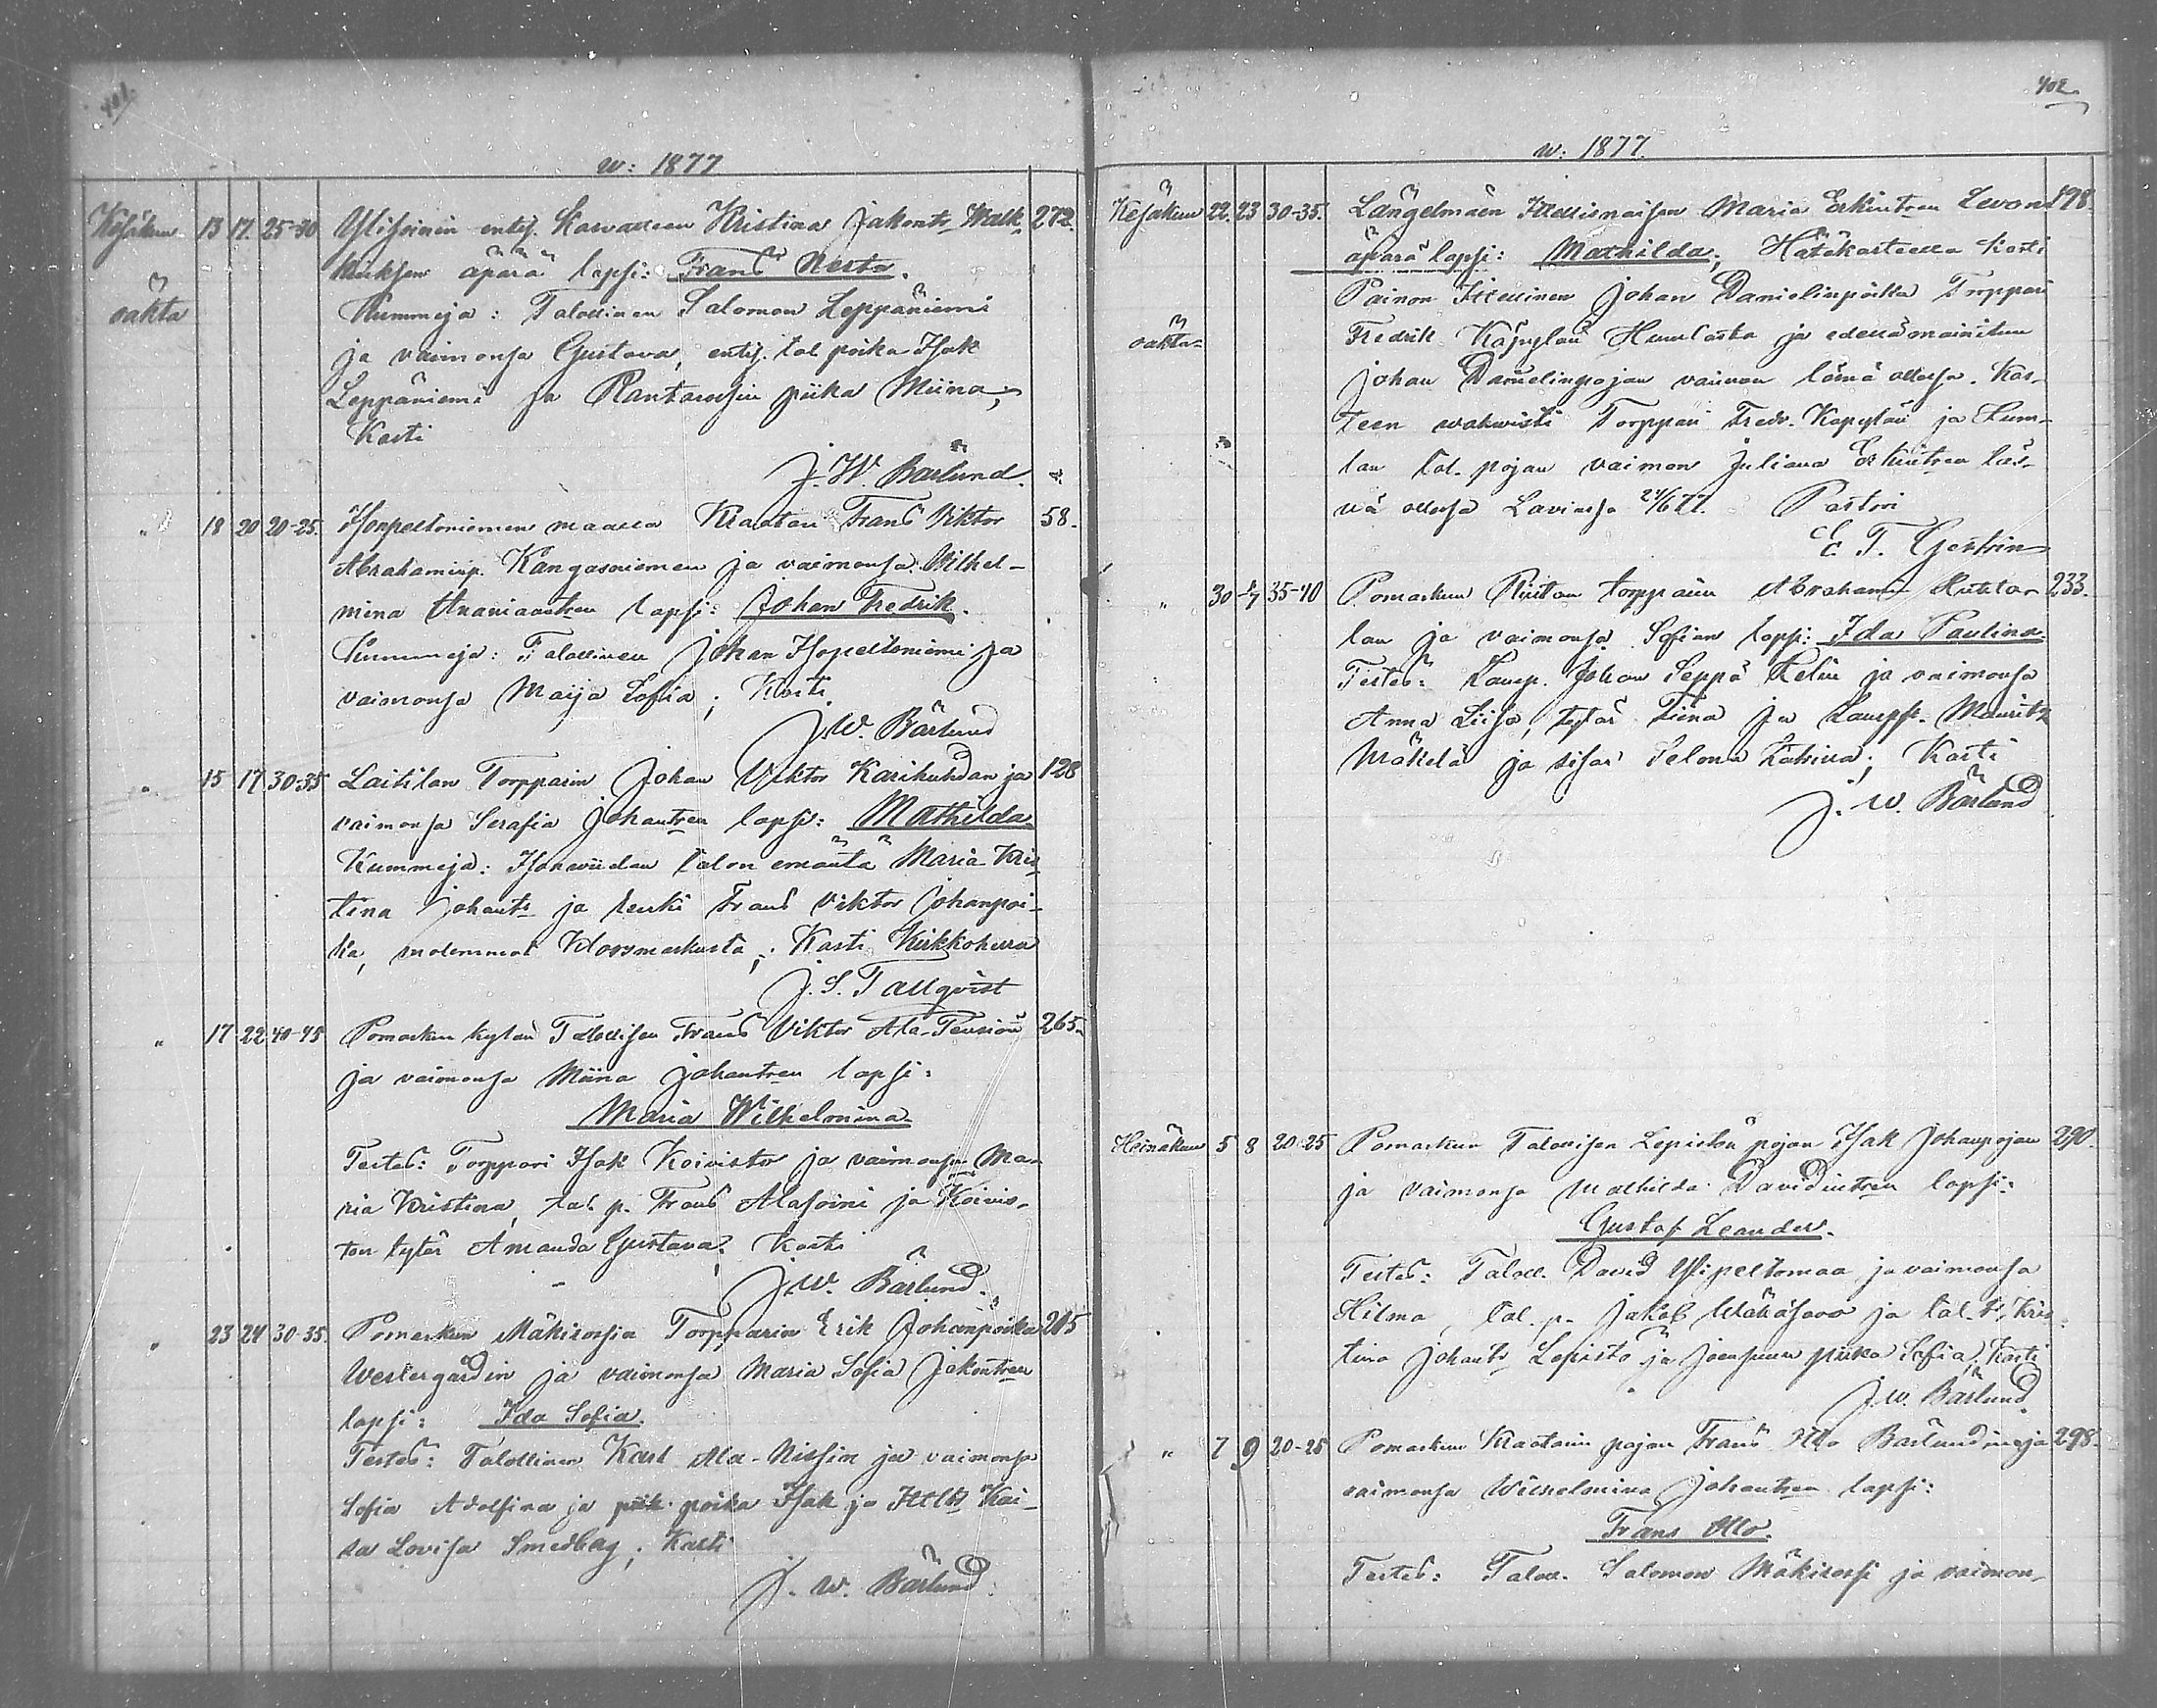 401.
w: 1877
Kesäkuu 13 17. 25-30 Ylisoinin entis. Karvarin Kristina Jakonts 272.
äpärä lapsi: Frans Nestor.
oákta Kummeja: Talollinen Salomon Leppäniemi
ja vaimonsa Gustava, entis. tal. poika Isak
Leppäniemi ja piika Miina;
Kasti
J. W. Bärlund.
" 18 20 20-25. Isopeltoniemen maalla Frans Viktor 58.
Abrahaminp. Kangasniemen ja vaimonsa Vilhel-
mina Ananiaantren lapsi: Johan Fredrik.
Kummeja: Talollinen Johan Isopeltoniemi ja
vaimonsa Maija Sofia; Kasti
J. W. Bärlund
" 15 17 30-35 Laitilan Torpparin Johan Viktor Karihuhdan ja 128
vaimonsa Serafia Johantren lapsi: Mathilda.
Kummeja: talon emäntä Maria Kris-
tina Johants ja renki Frans Viktor Johanpoi-
ka, molemmat Kloosmarkusta; Kasti Kirkkoherra
J. S. Tallqvist
" 17 22 40-45 Pomarkun kylän Talollisen Frans Viktor Ala-Pensiön 265.
ja vaimonsa Miina Johantren lapsi:
Maria Wilhelmina
Testes: Torppari Isak Koivisto ja vaimonsa Ma-
ria Kristina, tal. p. Frans Alasoini ja Koivis-
ton tytär Amanda Gustava; Kasti
J. W. Bärlund.
" 23 24 30-35. Pomarkun Mäkirossin Torpparin Erik Johanpoika 205
Westergårdin ja vaimonsa Maria Sofia Jakontren
lapsi: Ida Sofia.
Testes: Talollinen Karl Ala-Nissin ja vaimonsa
Sofia Adolfina ja poika Isak ja Kai-
sa Lovisa Smedberg; Kasti
J. W. Bärlund.
402.
w: 1877.
Kesäkuu 22. 23 30-35. Längelmäen Itsellisnaisen Maria Erkintren 898.
äpärä lapsi: Mathilda; Hätäkasteella kasti
Painon Itsellinen Johan Danielinpoika Torppari
oákta Fredrik Käpylän ja edellämainitun
Johan Danielinpojan vaimon läsnä ollessa. Kas-
teen wahwisti Torppari Fredr. Käpylän ja
lan tal. pojan vaimon Juliana Erkintren läs-
nä ollessa Laviassa 24/6 77. Pastori
" 30 1/7 35-40 Pomarkun torpparin Abraham 233.
lan ja vaimonsa Sofian lapsi: Ida Paulina.
Testes: Lamp. Johan Seppä ja vaimonsa
Anna Liisa, tytär Tiina ja Lamp. Mauritz
Mäkelä ja sisar Selma Katrina; Kasti
J. W. Bärlund
Heinäkuu 5 8 20-25 Pomarkun Talollisen Lepistön pojan Isak Johanpojan 290.
ja vaimonsa Mathilda Davidintren lapsi:
Gustaf Leander.
Testes: Taloll. David Ylipeltomaa ja vaimonsa
Hilma, tal. p. Jakob Wähäsavo ja tal. t. Kris-
tina Johants Lepistö ja Joensuun piika Sofia; Kasti
J. W. Bärlund.
" 7 9 20-25 Pomarkun pojan Frans Otto Bärlundin ja 298.
vaimonsa Wilhelmina Johantren lapsi:
Frans Otto.
Testes: Taloll. Salomon Mäkirossi ja vaimon-